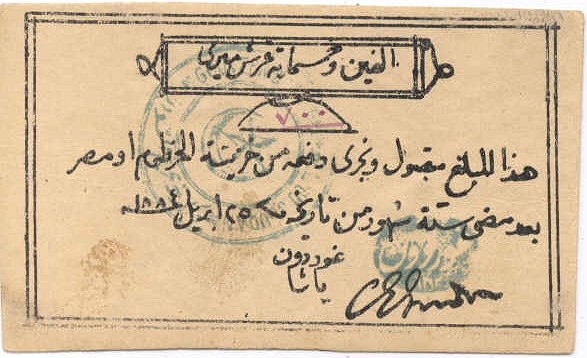 الفين وخمسماية غرش ميرى
٧٠٠
هذا المبلغ مقبول ويجرى دفعه من خزينة الخرطوم او مصر
بعد مضى ستة شهور من تاريخه ٢٥ ابريل ١٨٨٤سنه
غوردون
باشا